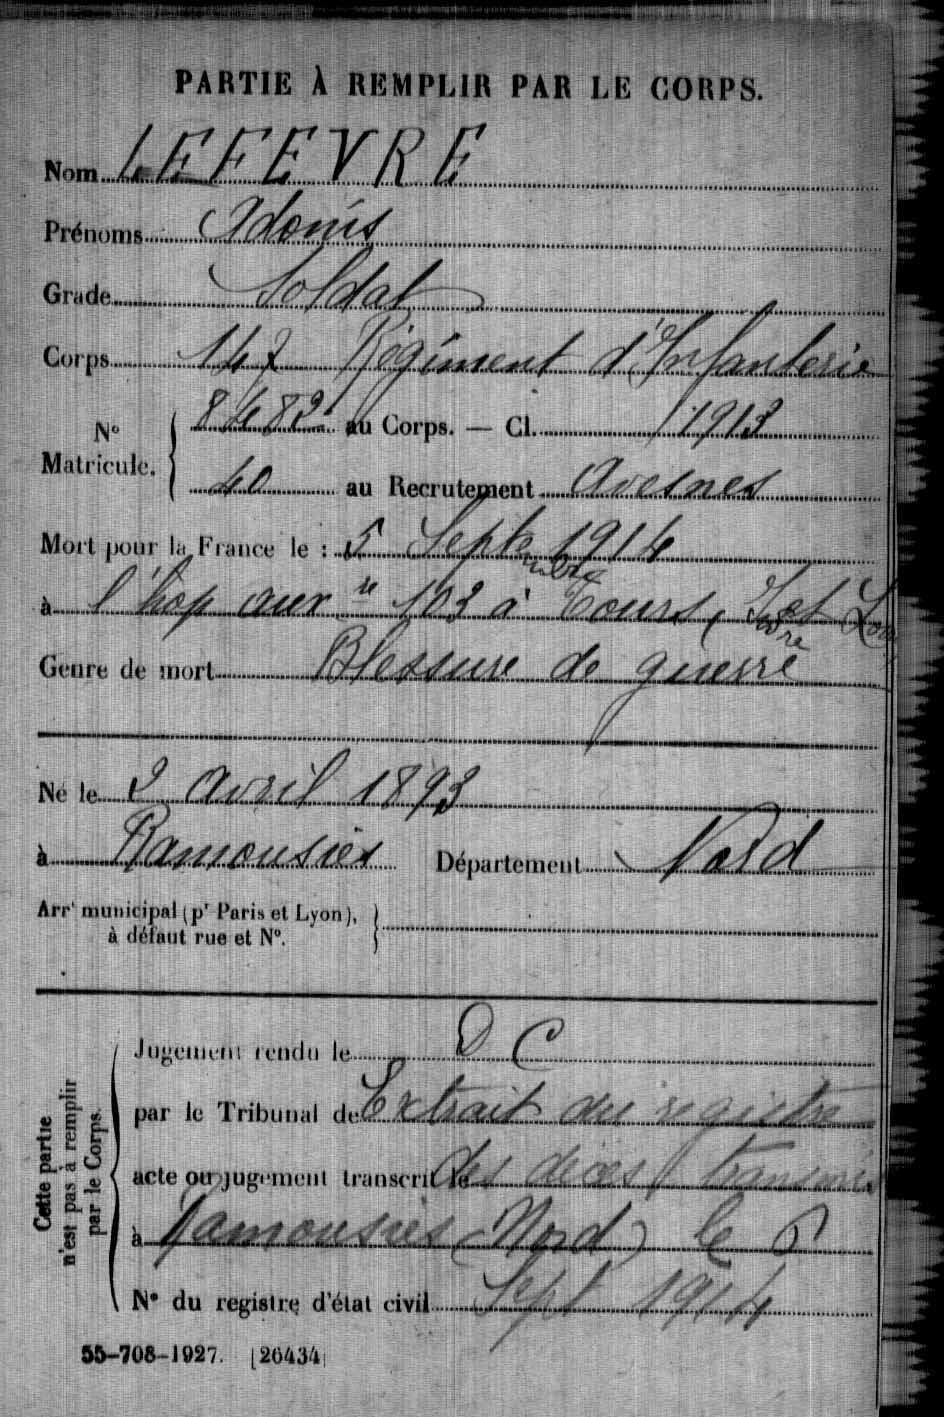 PARTIE À REMPLIR PAR LE CORPS.
Nom LEFEVRE
Prénoms Adonis
Grade Soldat
Corps 147 Régiment d'Infanterie
N° Matricule. 8482 au Corps. — Cl. 1913
40 au Recrutement Avesnes
Mort pour la France le : 5 Septembre 1914
à l'hop aux re 103 à Tours (Indre et Loire
Genre de mort Blessure de guerre
Né le 2 Avril 1893
à Ramousies Département Nord
Arrt municipal (pr Paris et Lyon),
à défaut rue et N°.
Cette partie n'est pas à remplir par le Corps.
Jugement rendu le D C
par le Tribunal de Extrait du registre
acte ou jugement transcrit le des décès transmis
à Ramousies (Nord) le 5
N° du registre d'état civil Sept 1914
55-708-1927. [26434]